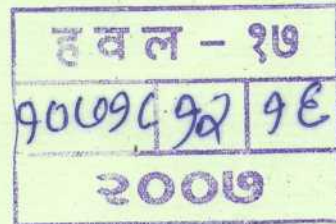 हवल - १७
१०७१८ १२ १६
२००७